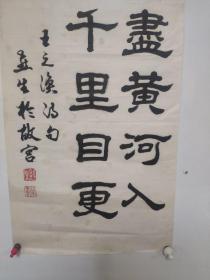 盡黃河入
千里目更
王之渙詩句
燕生於故宮